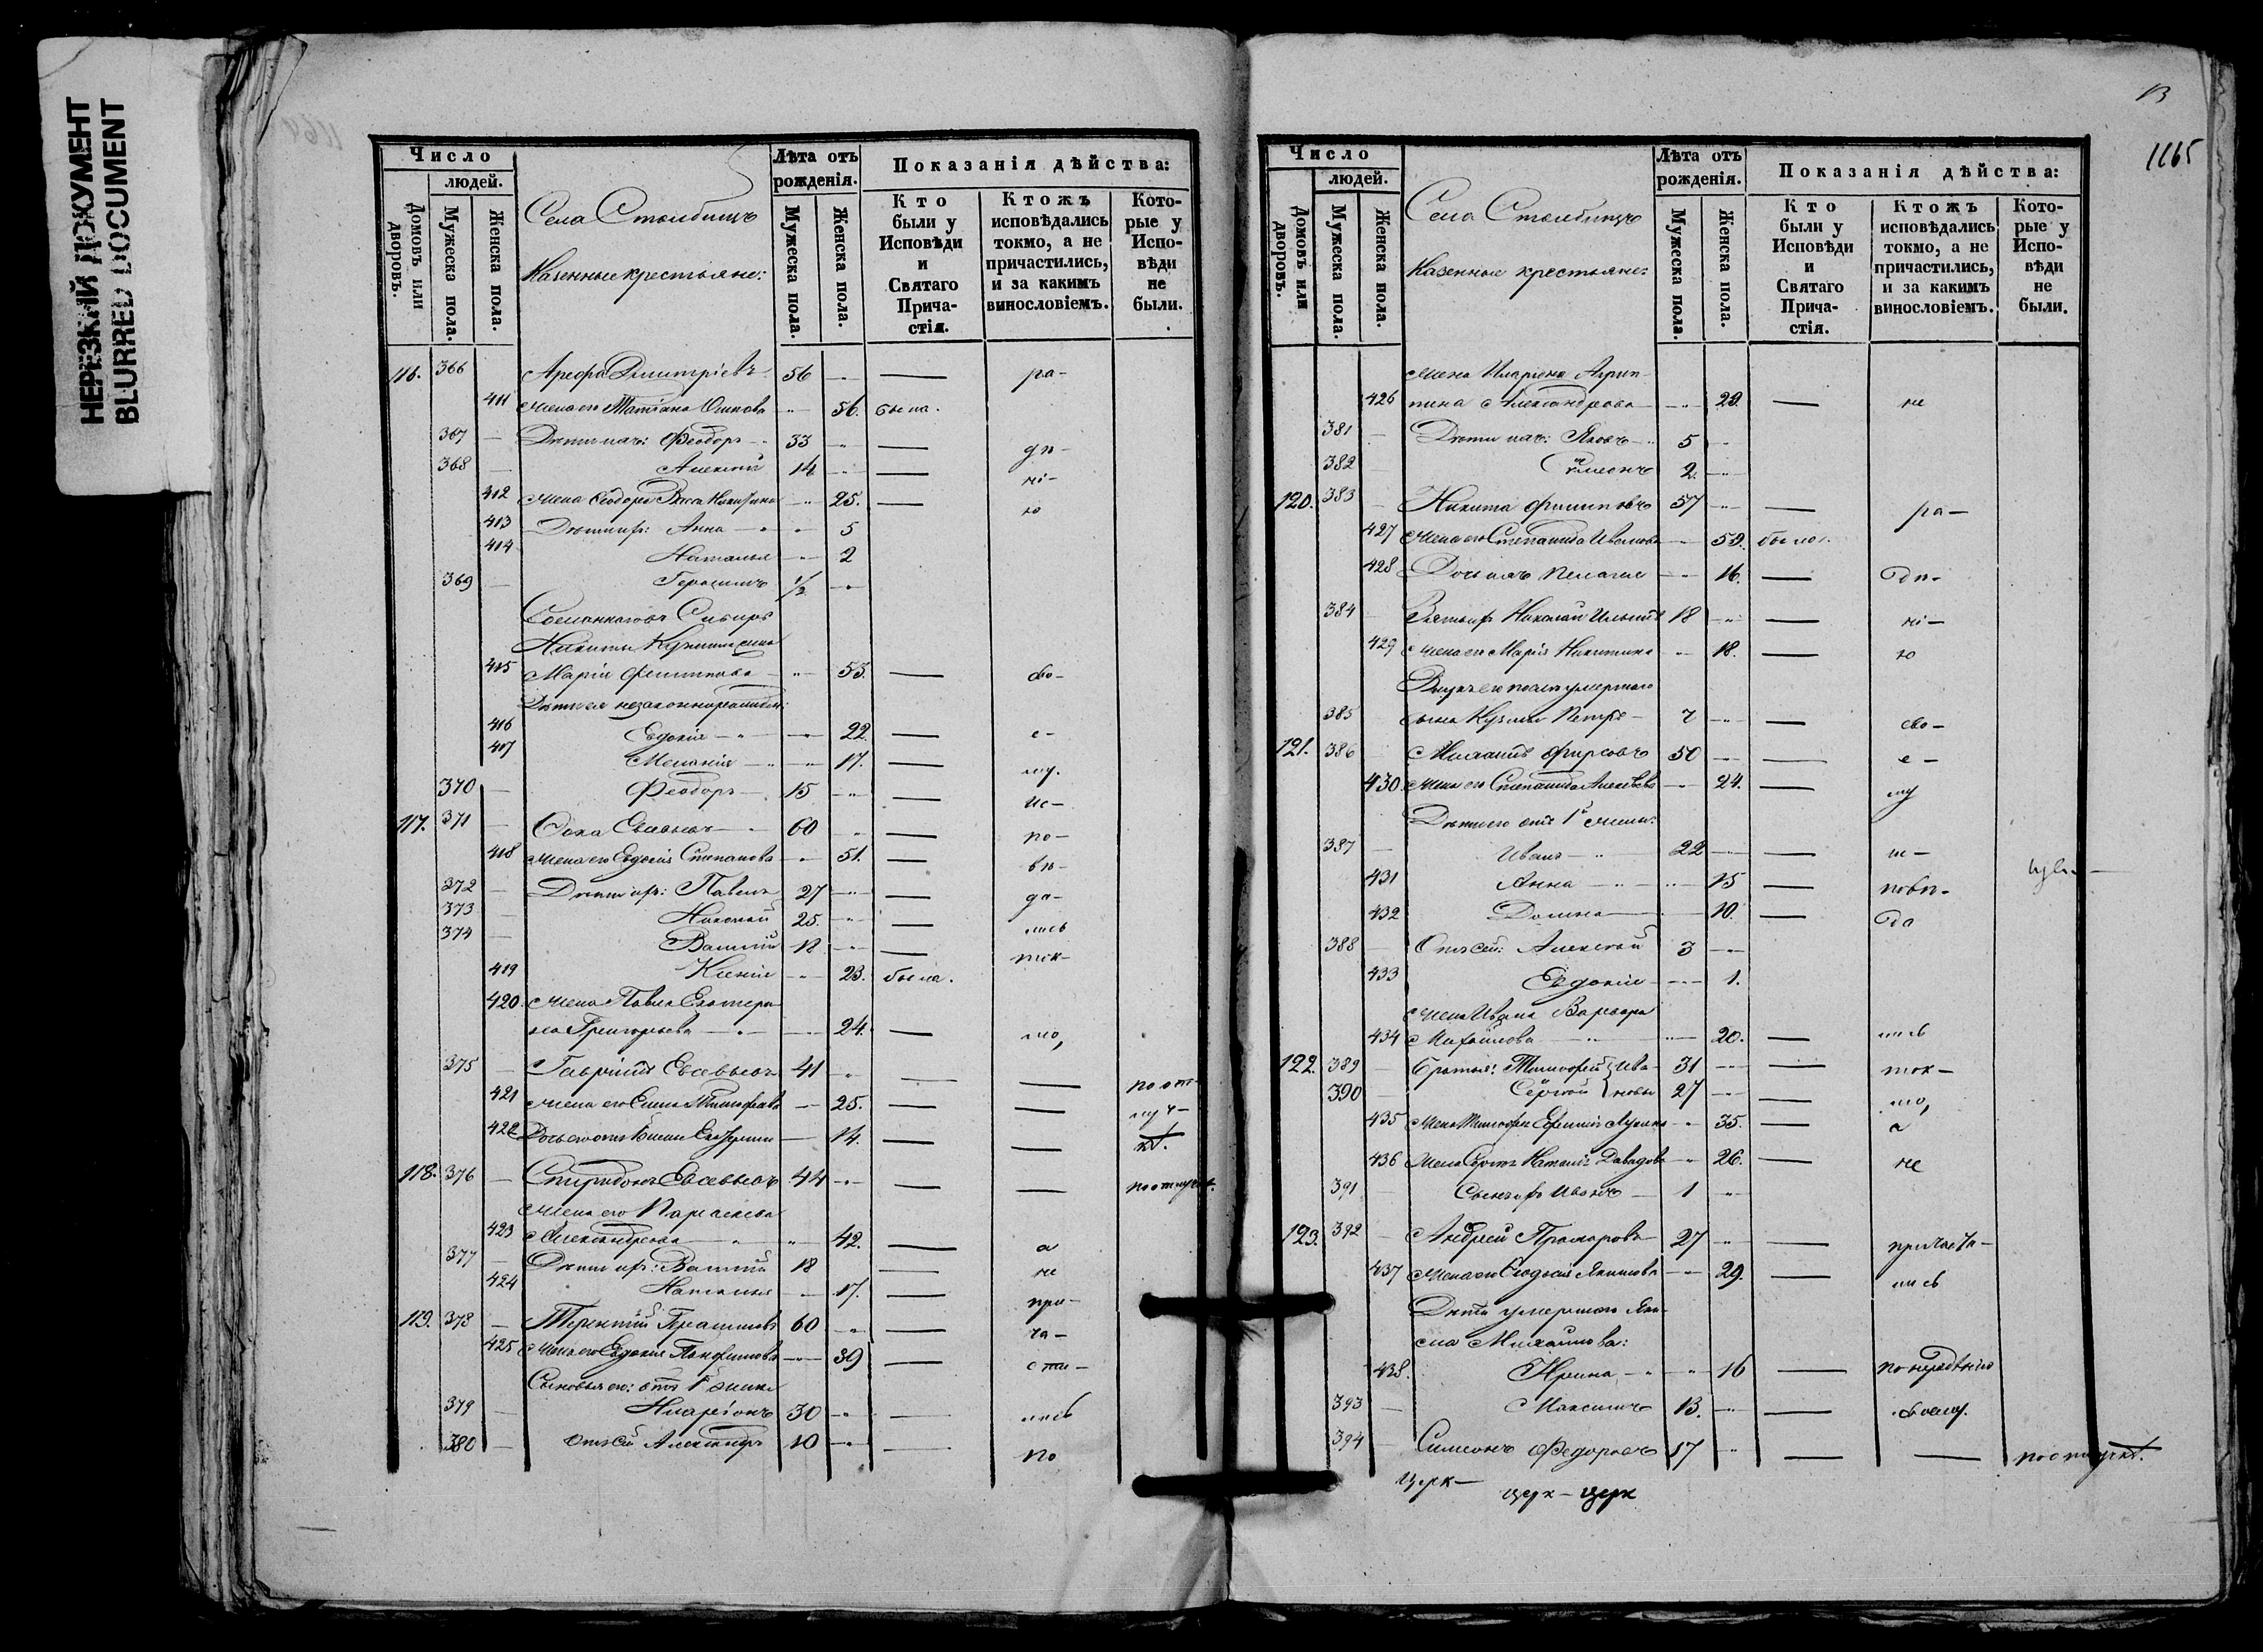 НЕРЕЗКИЙ ДОКУМЕНТ
BLURRED DOCUMENT
Число
людей.
Домовъ или дворовъ.
Мужеска пола.
Женска пола.
Села
Казенные крестьяне:
Лѣта отъ рожденія.
Мужеска пола.
Женска пола.
Показанія дѣйства:
Кто были у Исповѣди и Святаго Прича-стія.
Ктожъ исповѣдались токмо, а не причастились, и за какимъ винословіемъ.
Кото-рые у Испо-вѣди не были.
116. 366 Арефа Димитріевъ 56 — ра-
411 Жена его Татіана 56. была.
367 Дѣти ихъ: Феодоръ 33 — дѣ-
368 Алексѣй 14 — ні-
412 Жена Феодора Васса Никитина 25. — ю
413 Дѣти ихъ: Анна 5
414 Наталья 2
369 Герасимъ 1/2
Сосланнаго въ Сибирь
Никиты жена
415 Марія Филиппова 53. — сво-
Дѣти ея незаконнорожденные:
416 Евдокія 22. — е-
417 Меланія 17. — му.
370 Феодоръ 15 — ис-
117. 371 Фока Евсевьевъ 60 — по-
418 Жена его Евдокія Степанова 51. — вѣ-
372 Дѣти ихъ: Павелъ 27 — да-
373 Николай 25. — лись
374 Василій 18 — ток-
419 Ксенія 23. была.
420. Жена Павла Екатери-
на Григорьева 24. — мо,
375 Гавріилъ Евсевьевъ 41 — — по от-
421 Жена его Елена Тимофеева 25. — — луч-
422 Дочь его отъ 1й жены 14. — — кѣ.
118. 376 Спиридонъ Евсевьевъ 44 — — по отлучкѣ.
Жена его Параскева
423 Александрова 42. — а
377 Дѣти ихъ: Василій 18 — не
424 Наталья 17. — при-
119. 378 Терентій Герасимовъ 60 — ча-
425 Жена его Евдокія Панфилова 39 — сти-
Сыновья его: отъ 1й жены
379 Иларіонъ 30 — лись
380 отъ сей Александръ 10 — по
13
1165
Число
людей.
Домовъ или дворовъ.
Мужеска пола.
Женска пола.
Села
Казенные крестьяне:
Лѣта отъ рожденія.
Мужеска пола.
Женска пола.
Показанія дѣйства:
Кто были у Исповѣди и Святаго Прича-стія.
Ктожъ исповѣдались токмо, а не причастились, и за какимъ винословіемъ.
Кото-рые у Испо-вѣди не были.
Жена Иларіона Агрип-
426 пина Александрова 29. — не
381 Дѣти ихъ: Яковъ 5
382 Симеонъ 2.
120. 383 Никита Филипповъ 57 — ра-
427 Жена его Степанида Иванова 59. была.
428 Дочь ихъ Пелагія 16. — дѣ-
384 Зять ихъ Николай Ильинъ 18 — ні-
429 Жена его Марія Никитина 18. — ю
Внукъ его послѣ умершаго
385 сына Кузьмы Петръ 7 — сво-
121. 386 Михаилъ Фирсовъ 50 — е-
430 Жена его Степанида Алексѣева 24. — му
Дѣти его отъ 1й жены:
387 Иванъ 22 — ис-
431 Анна 15 — повѣ-
432 Домна 10. — да
388 Отъ сей: Алексѣй 3
433 Евдокія 1.
Жена Ивана Варвара
434 Михайлова 20. — лись
122. 389 Братья: Тимофей Ива- 31 — ток-
390 Сергѣй новы 27 — мо,
435 Жена Тимофея 35. — а
436 Жена Сергѣя Наталія Давыдова 26. — не
391 Сынъ ихъ Иванъ 1
123. 392 Андрей Прохоровъ 27 — причасти-
437 Жена его Феодосія Якимова 29. — лись
Дѣти умершаго Яки-
ма Михайлова:
438. Ирина 16 — по нерадѣнію
393 Максимъ 13. — своему.
394 Симеонъ Федоровъ 17 — — по отлучкѣ.
церк-
церк - церк